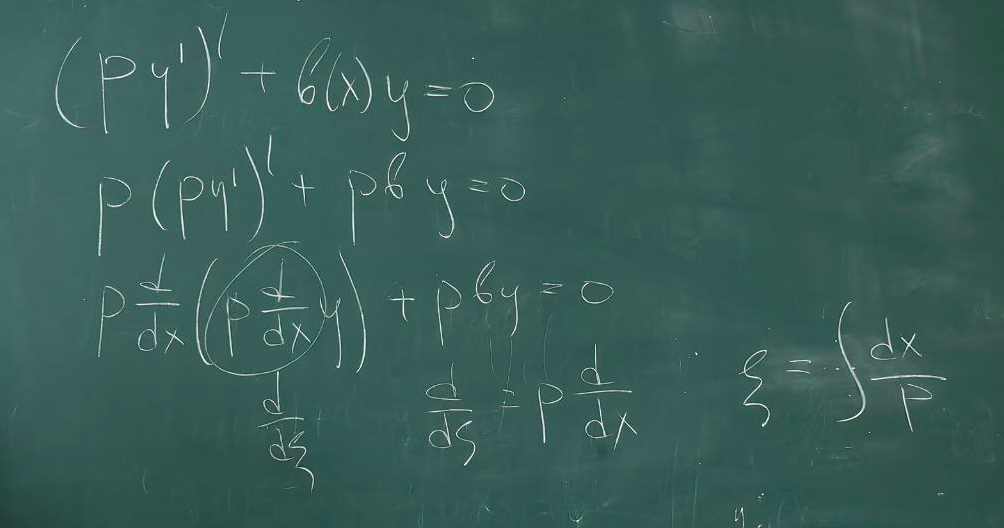 (py')' + b(x)y = 0
p(py')' + pby = 0
p d/dx (p d/dx y) + pby = 0
d/dξ
d/dξ = p d/dx
ξ = ∫ dx/p